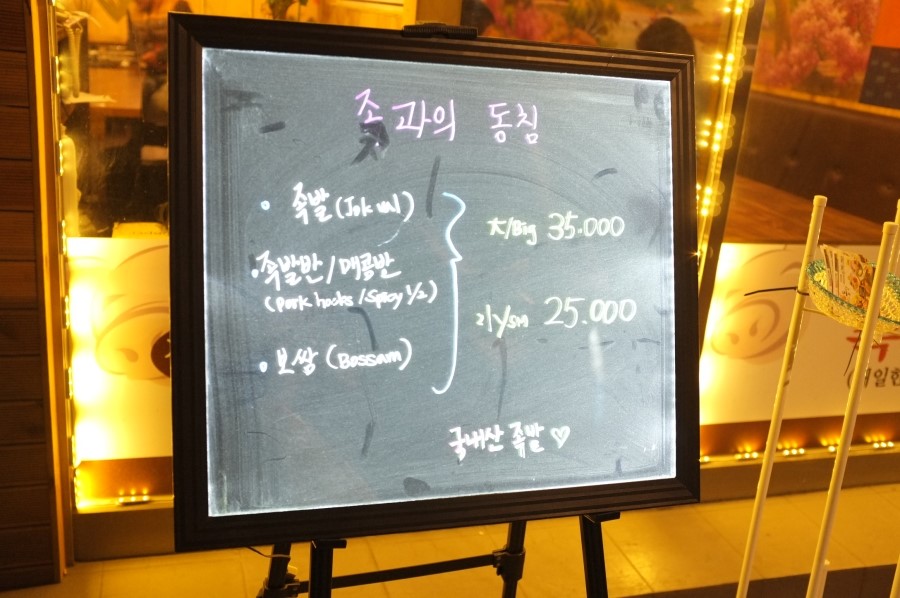 족과의 동침
족발 (Jok bal)
大/Big 35.000
족발반/매콤반
(pork hocks/spicy 1/2)
小/sm 25.000
보쌈 (Bossam)
국내산 족발 ♡